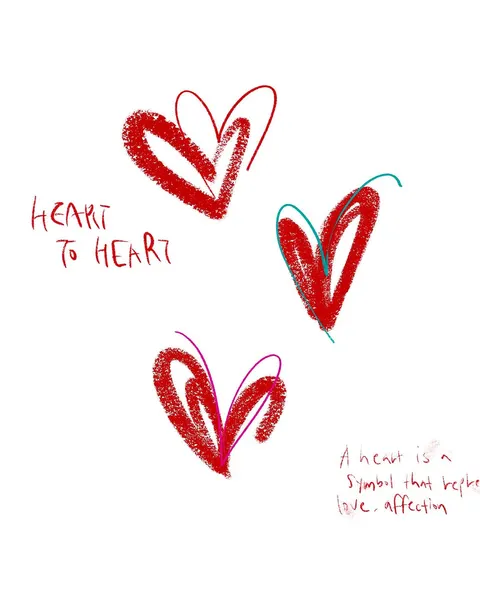 HEART
TO HEART
A heart is a
symbol that repre
love. affection